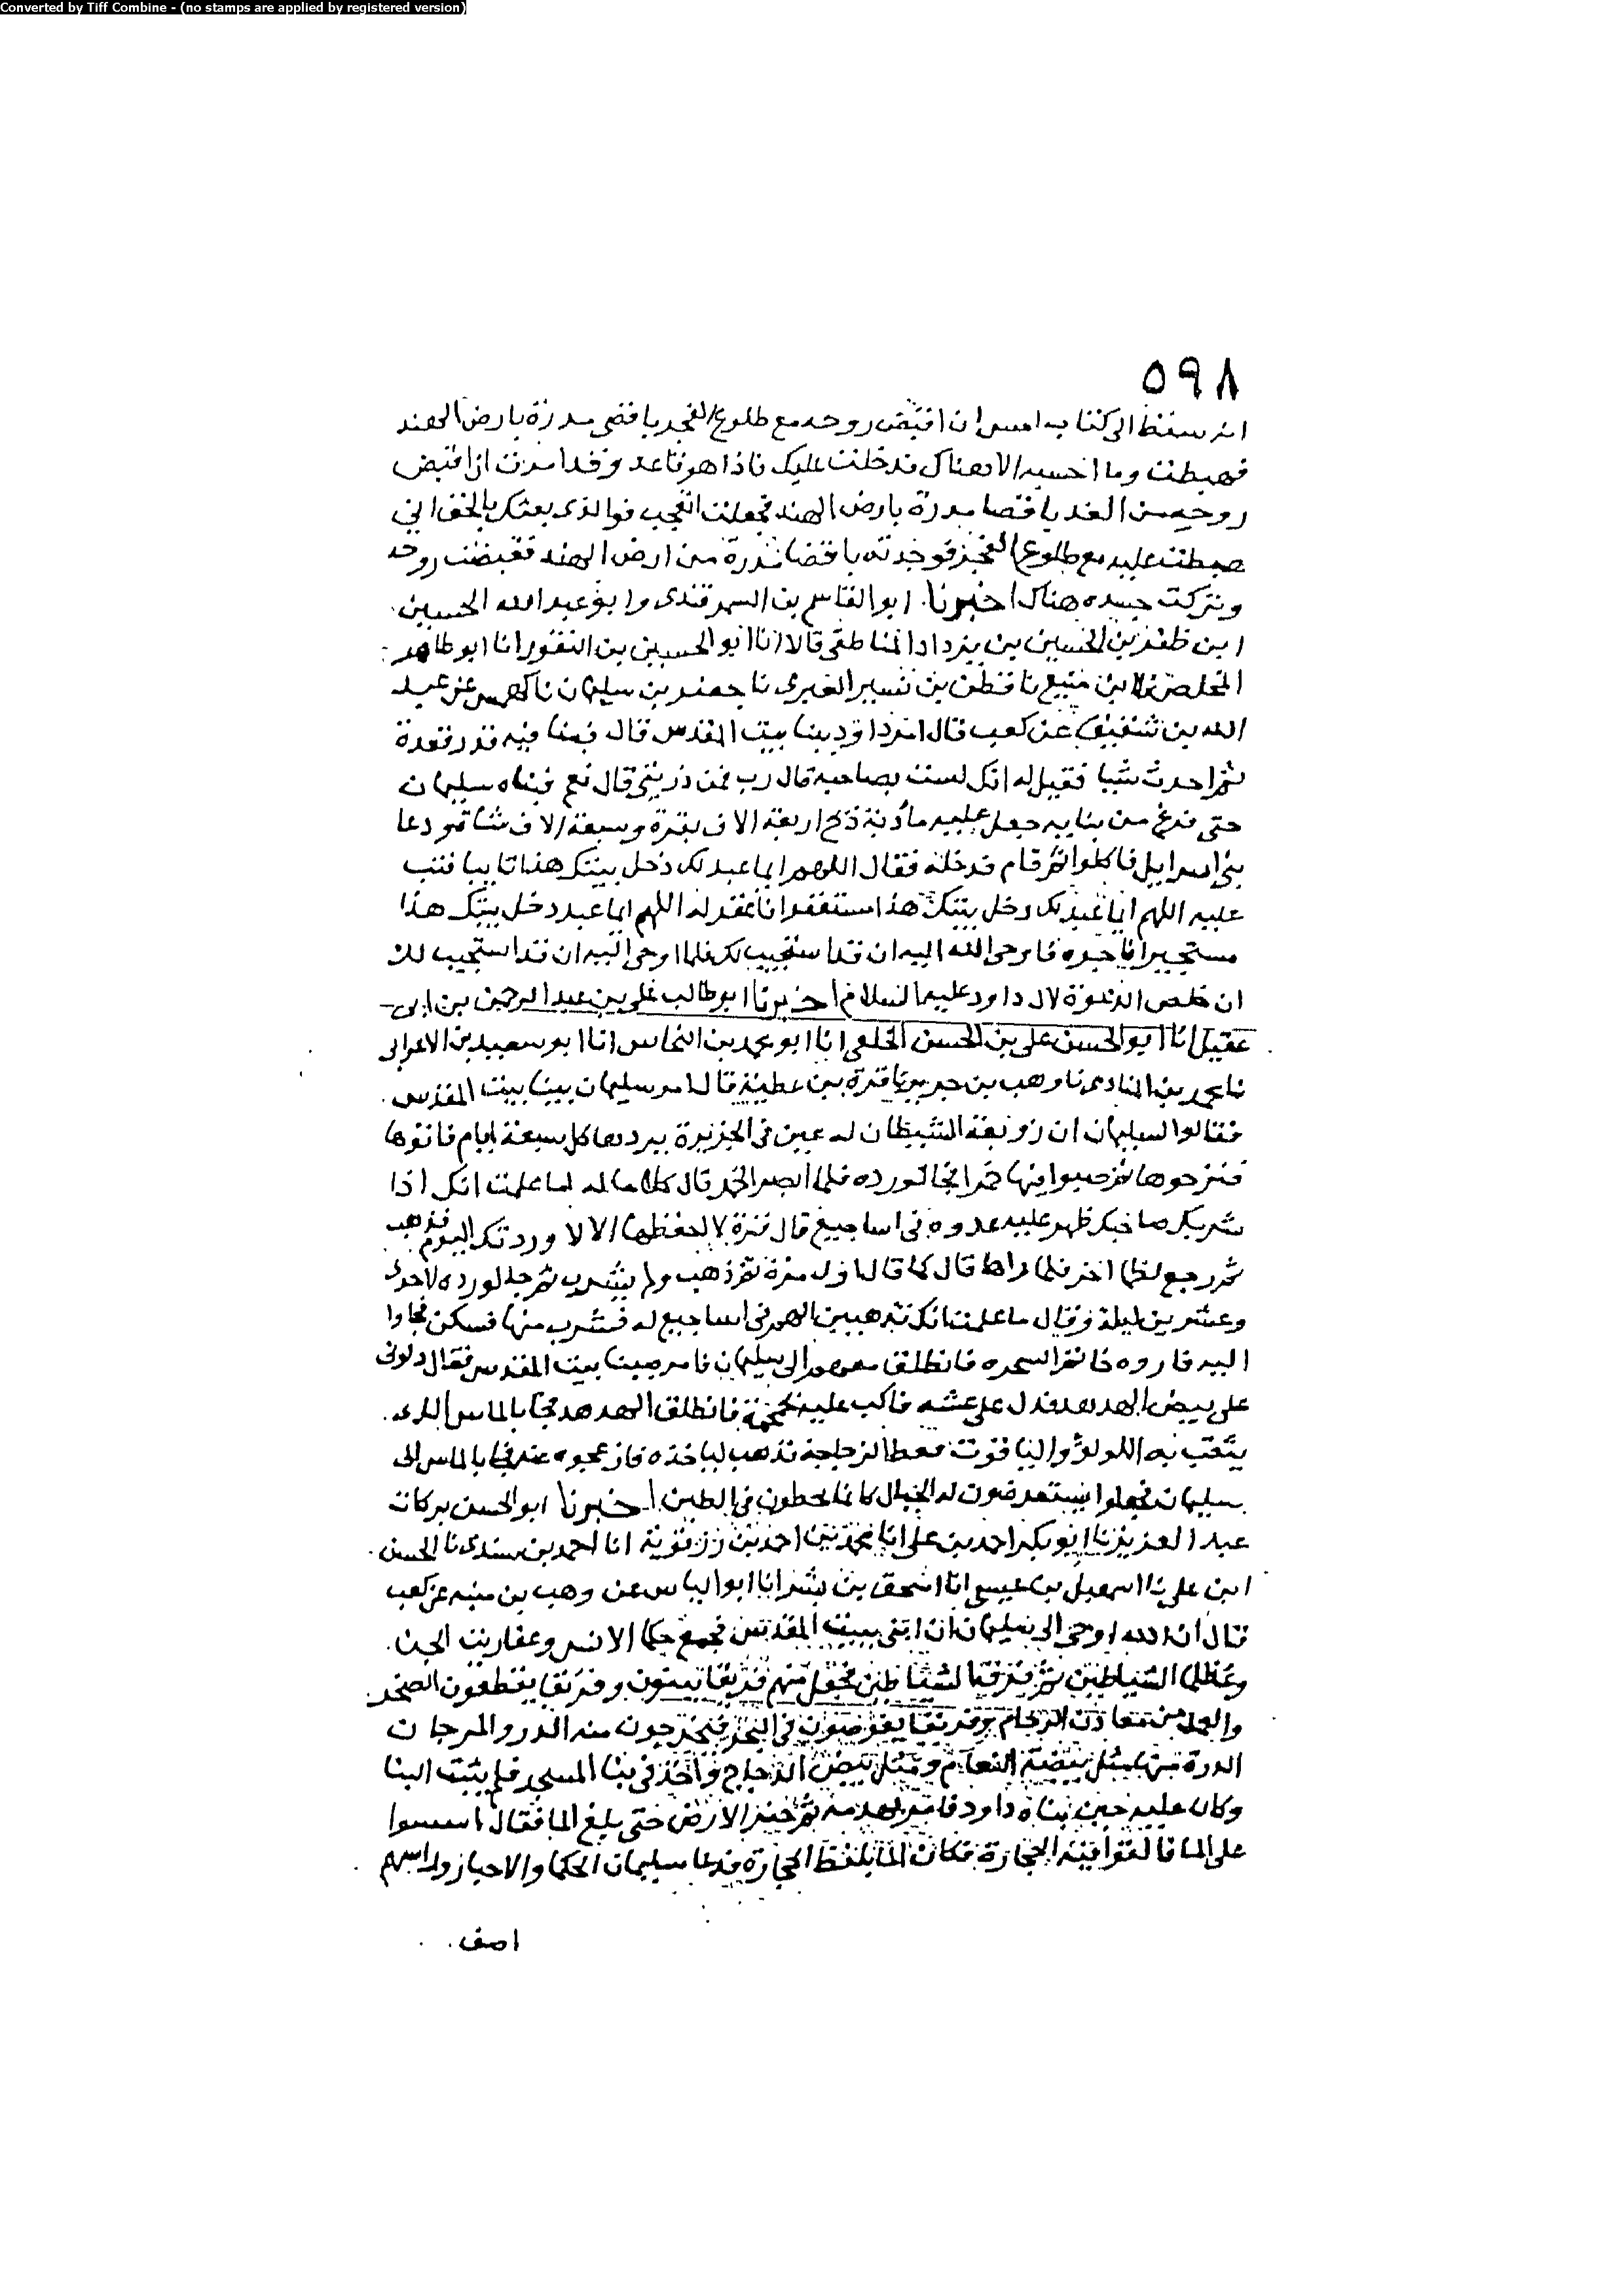 Converted by Tiff Combine - (no stamps are applied by registered version)
٥٩٨
انه سقط الى كتاب امس ان اقبض روحه مع طلوع الفجر باقصى مدرة بارض الهند
فهبطت وما احسبه الا هناك فدخلت عليك فاذا هو قاعد وقد امرت ان اقبض
روحه من الغد باقصا مدرة بارض الهند فجعلت اتعجب فوالذى بعثك بالحق انى
هبطت عليه مع طلوع الفجر فوجدته باقصا مدرة من ارض الهند فقبضت روحه
وتركت جسده هناك اخبرنا ابو القاسم بن السمرقندى وابو عبد الله الحسين
ابن ظفر بن الحسين بن يزداد المناطقى قالا انا ابو الحسين بن النقور انا ابو طاهر
المخلص نا ابن منيع نا قطن بن نسير الغبرى نا جعفر بن سليمان نا كهمس عن عبد
الله بن شقيق عن كعب قال امر داود ببنا بيت المقدس قال فبنا فيه قدر قعدة
ثم احدث شيا فقيل له انك لست بصاحبه قال رب فمن ذريتى قال نعم فبناه سليمان
حتى فرغ من بنايه جعل عليه مأدبة ذبح اربعة الاف بقرة وسبعة الاف شاة ودعا
بنى اسرايل فاكلوا ثم قام فدخله فقال اللهم ايما عبد لك دخل بيتك هذا تايبا فتب
عليه اللهم ايما عبد لك دخل بيتك هذا مستغفرا فاغفر له اللهم ايما عبد دخل بيتك هذا
مستجيرا فاجره فاوحى الله اليه ان قد استجيب لك فلما اوحى اليه ان قد استجيب لك
ان خلص الدعوة لال داود عليهما السلام اخبرنا ابو طالب على بن عبد الرحمن بن ابى
عقيل انا ابو الحسن على بن الحسن الخلعى انا ابو محمد بن النحاس انا ابو سعيد بن الاعرابى
نا محمد بن المنادى نا وهب بن جرير نا قرة بن عطية قال امر سليمان ببنا بيت المقدس
فقالوا لسليمان ان زوبعة الشيطان له عين فى الجزيرة يردها كل سبعة ايام فاتوها
فنزحوها ثم صبوا فيها خمرا فجا لورده فلما ابصر الخمر قال كلاما له اما علمت انك اذا
شربك صاحبك ظهر عليه عدوه فى اساجيع قال قرة لا احفظها الا لا وردتك اليوم فذهب
ثم رجع لظما اخر فلما راها قال كما قال اول مرة ثم ذهب ولم يشرب ثم جا لورده لاحدى
وعشرين ليلة فقال ما علمت انك تذهبين الهم فى اساجيع له فشرب منها فسكن فجاوا
اليه فاروه خاتم السحره فانطلق معهم الى سليمان فامر ببنا بيت المقدس فقال دلونى
على بيض الهدهد فدل على عشه فاكب عليه جمجمة فانطلق الهدهد فجا بالماس الذى
يثقب به اللولؤ والياقوت فغطا الزجاجة فذهب لياخذه فازعجوه عنه فجا بالماس الى
سليمان فجعلوا يستعرضون له الجبال كانما يخطون فى الطين اخبرنا ابو الحسن بركات
عبد العزيز نا ابو بكر احمد بن على انا محمد بن احمد بن رزقوية انا احمد بن سندى نا الحسن
ابن على نا اسمعيل بن عيسى انا اسحق بن بشر انا ابو الياس عن وهب بن منبه عن كعب
قال ان الله اوحى الى سليمان ان ابنى بيت المقدس فجمع حكما الانس وعفاريت الجن
وعظما الشياطين ثم فرق الشياطين فجعل منهم فريقا يبنون وفريقا يقطعون الصخر
والعمد من معادن الرخام وفريقا يغوصون فى البحر فيخرجون منه الدر والمرجان
الدرة منها مثل بيضة النعام ومثل بيض الدجاج واخذ فى بنا المسجد فلم يثبت البنا
وكان عليه حين بناه داود فامر بهدمه ثم حفر الارض حتى بلغ الما فقال اسسوا
على الما فالقوا فيه الحجارة فكان الما يلفظ الحجارة فدعا سليمان الحكما والاحبار وراسهم
اصف